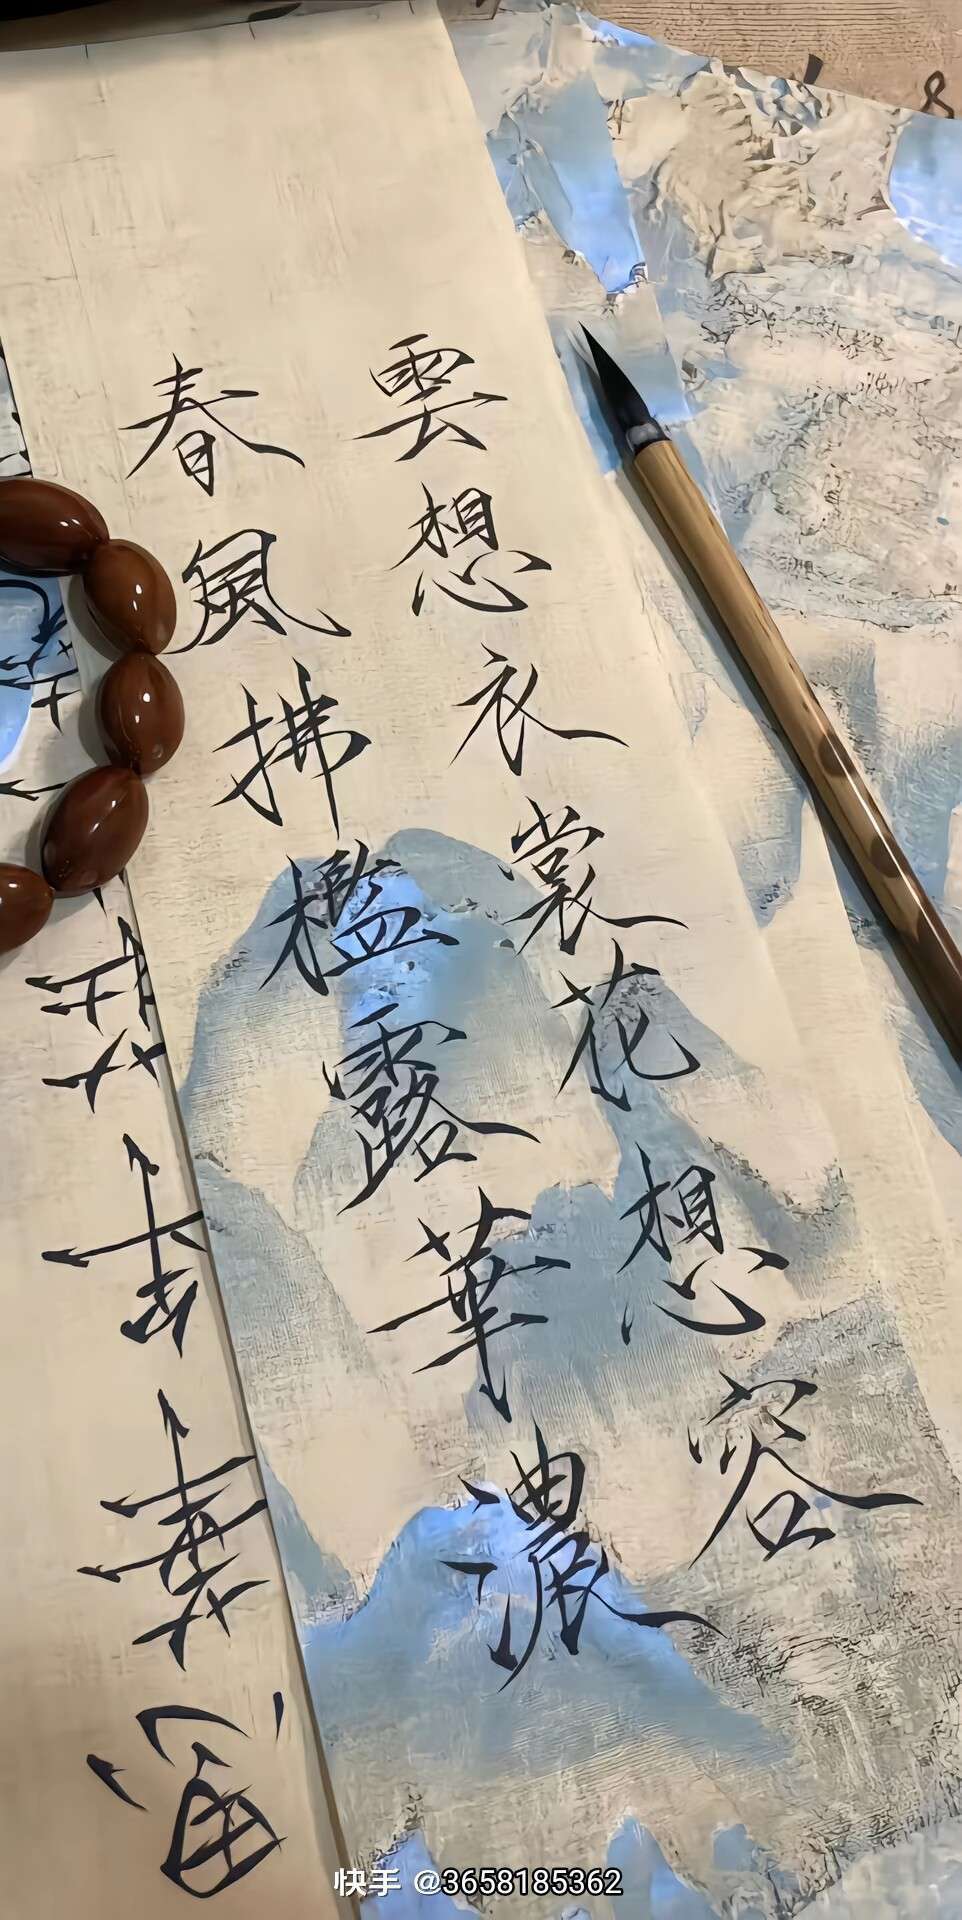 雲想衣裳花想容
春風拂檻露華濃
快手 @3658185362